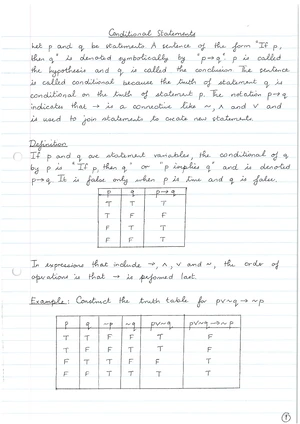 Conditional Statements
Let p and q be statements. A sentence of the form "If p,
then q" is denoted symbolically by "p→q". p is called
the hypothesis and q is called the conclusion. The sentence
is called conditional because the truth of statement q is
conditional on the truth of statement p. The notation p→q
indicates that → is a connective like ~, ∧ and ∨ and
is used to join statements to create new statements.
Definition
If p and q are statement variables, the conditional of q
by p is "If p, then q" or "p implies q" and is denoted
p→q. It is false only when p is true and q is false.
p q p→q
T T T
T F F
F T T
F F T
In expressions that include →, ∧, ∨ and ~, the order of
operations is that → is performed last.
Example: Construct the truth table for p∨~q → ~p
p q ~p ~q p∨~q p∨~q→~p
T T F F T F
T F F T T F
F T T F F T
F F T T T T
1